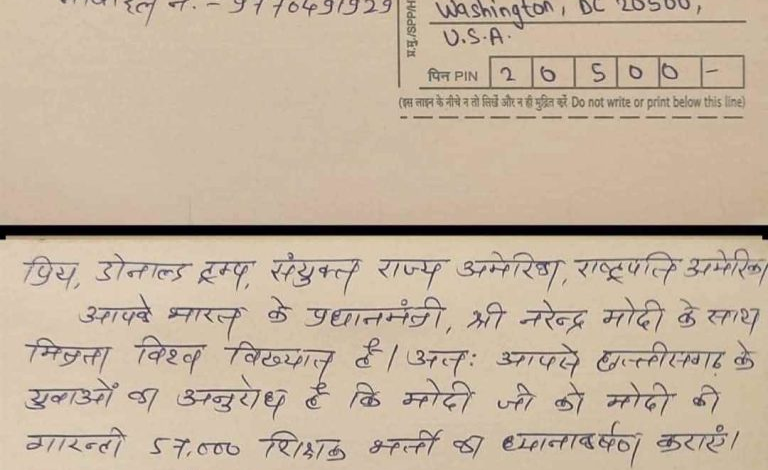 मोबाइल नं. - 9770491929
Washington, DC 20500,
U.S.A.
पिन PIN 20500-
(इस लाइन के नीचे न तो लिखें और न ही मुद्रित करें Do not write or print below this line)
प्रिय, डोनाल्ड ट्रम्प, संयुक्त राज्य अमेरिका, राष्ट्रपति अमेरिका
आपके भारत के प्रधानमंत्री, श्री नरेन्द्र मोदी के साथ
मित्रता विश्व विख्यात है। अतः आपसे छत्तीसगढ़ के
युवाओं का अनुरोध है कि मोदी जी को मोदी की
गारन्ती 57,000 शिक्षक भर्ती का ध्यानाकर्षण कराएं।